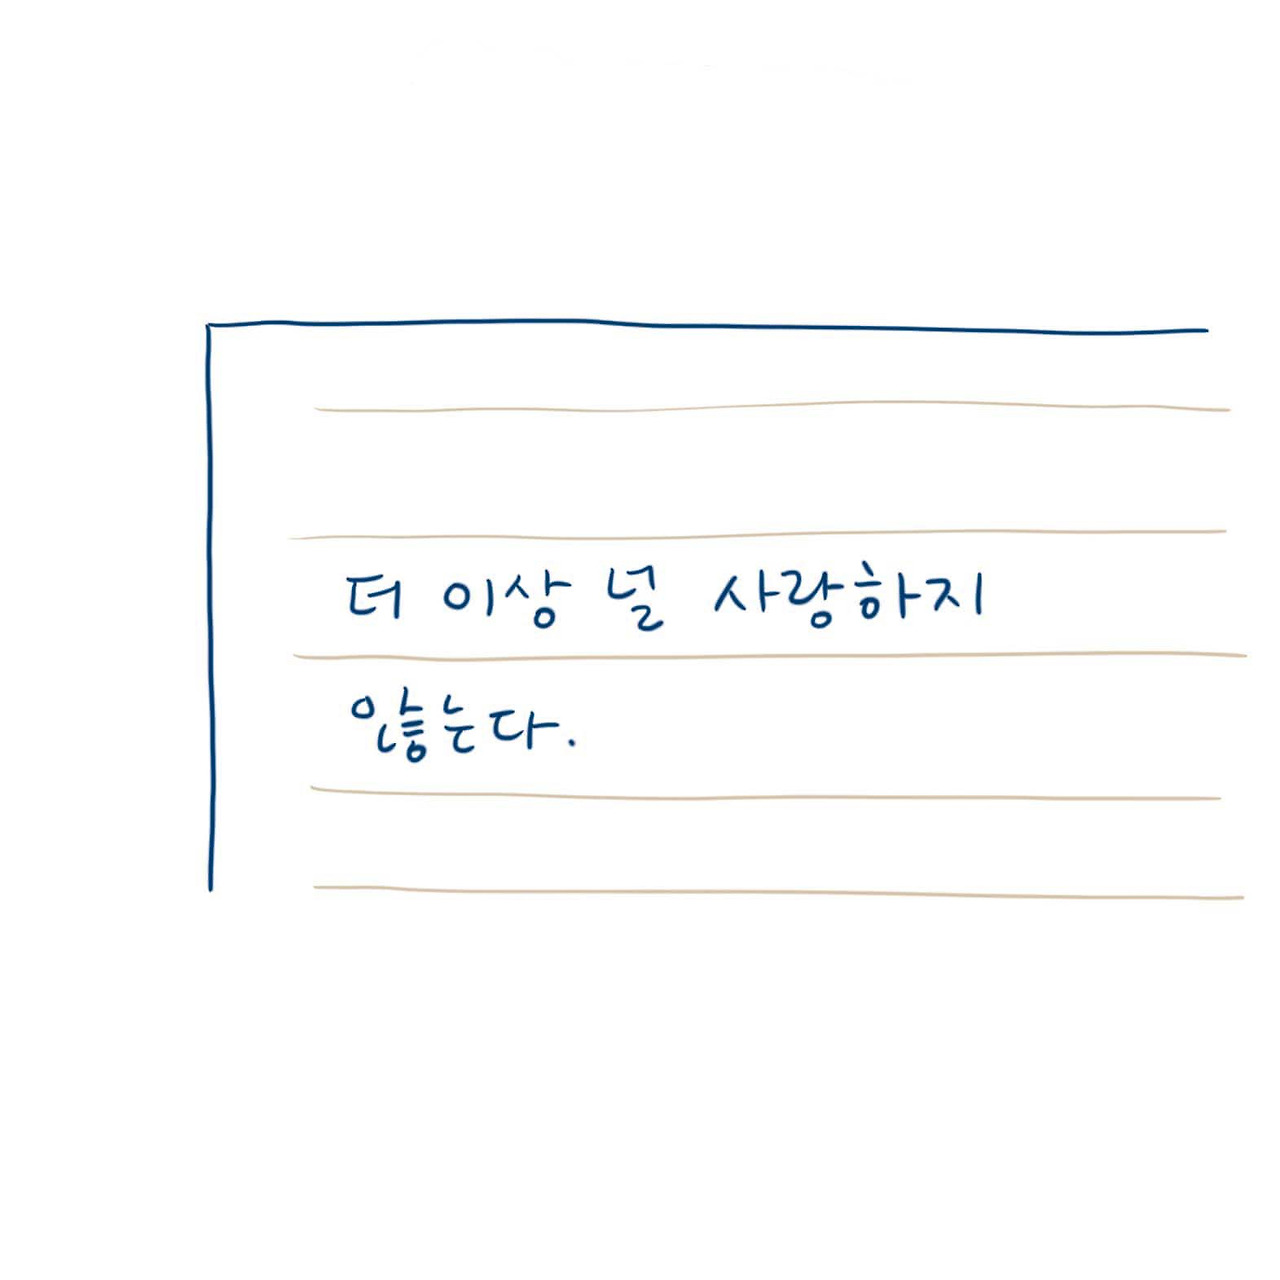 더 이상 널 사랑하지
않는다.